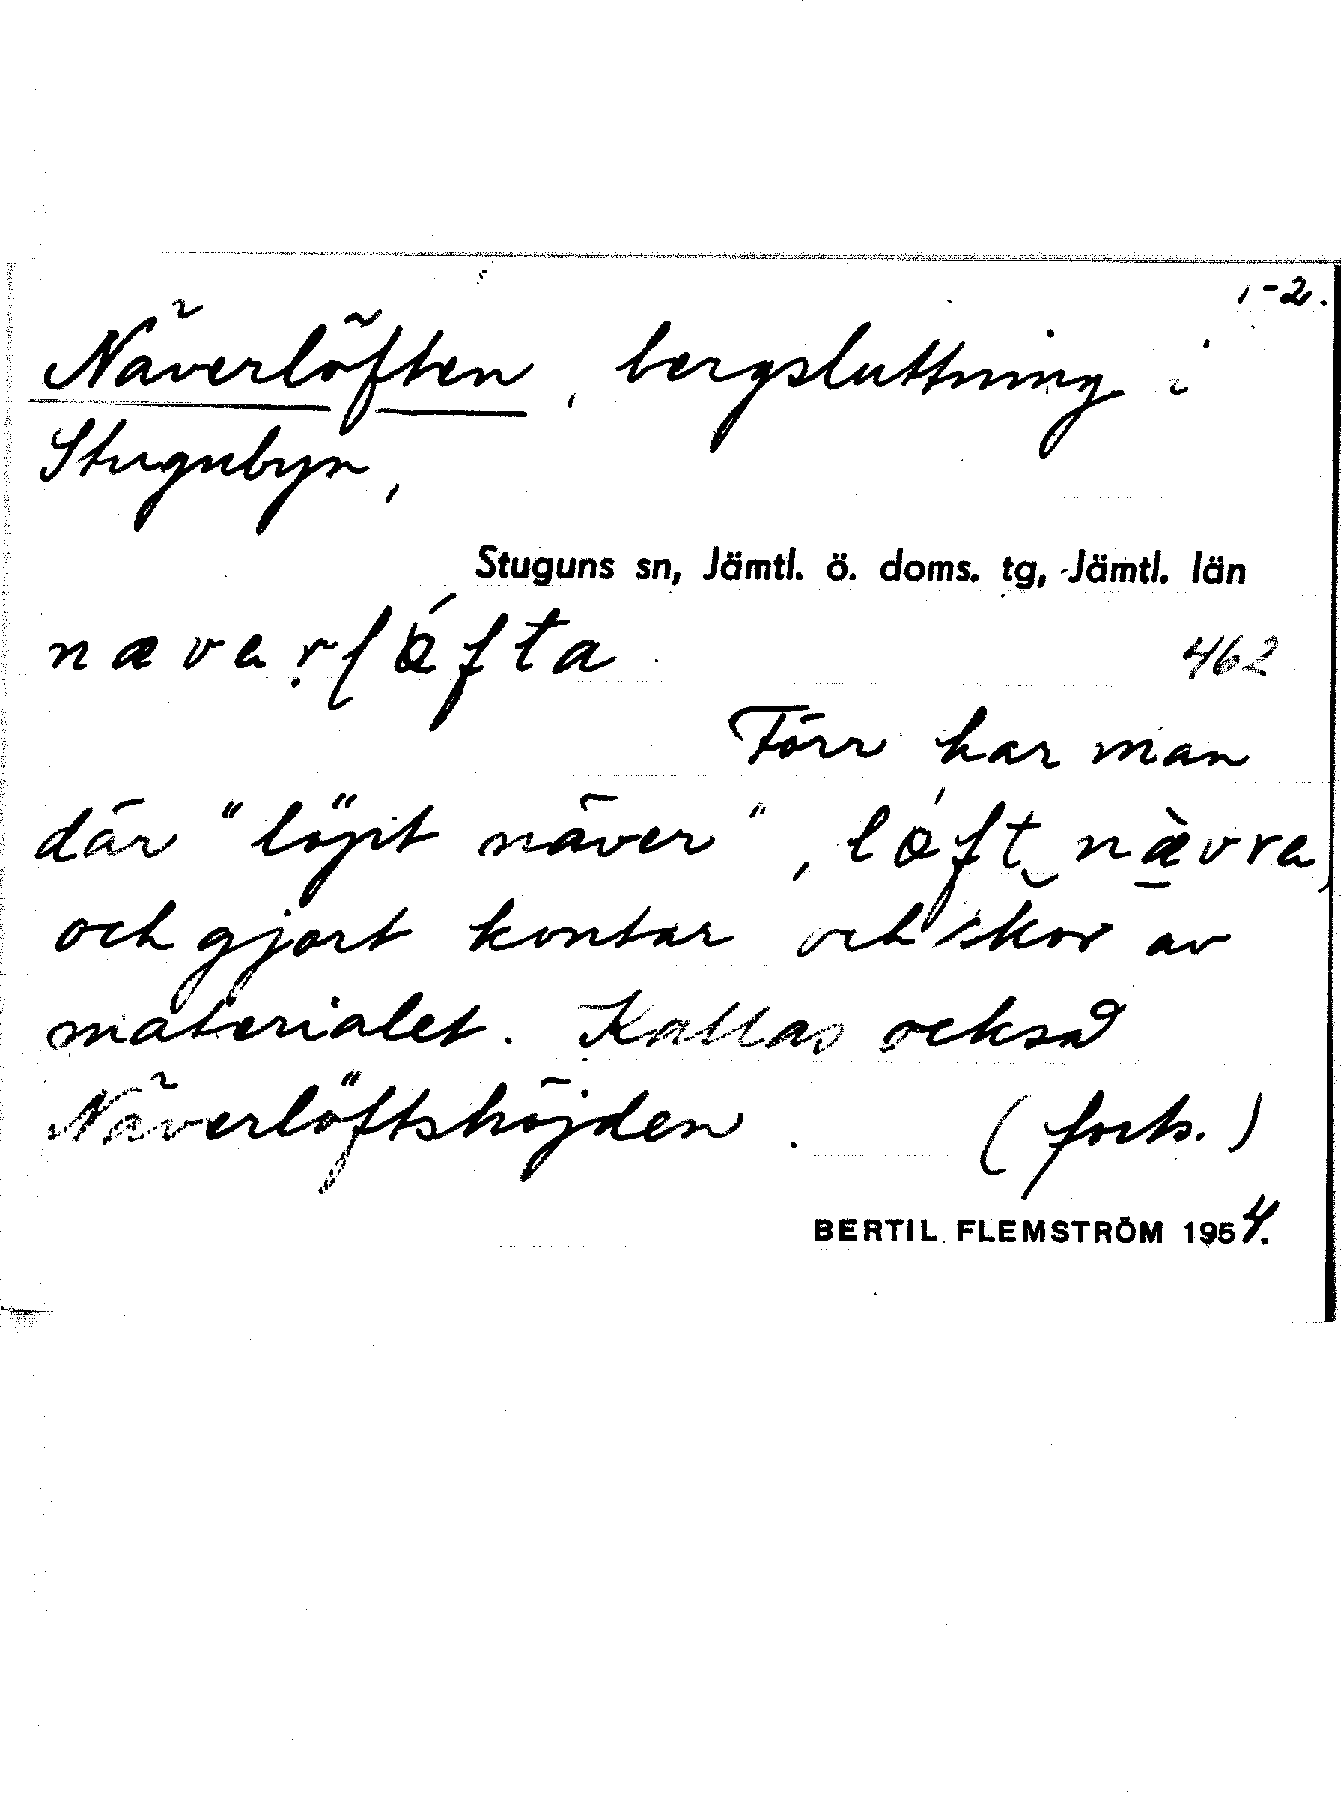 1-2.
Näverlöften, bergsluttning i
Stugubyn,
Stuguns sn, Jämtl. ö. doms. tg, Jämtl. län
462
Förr har man
där "löpit näver", løft nævra,
och gjort kontar och skor av
materialet. Kallas också
Näverlöftshöjden. (forts.)
BERTIL FLEMSTRÖM 1954.